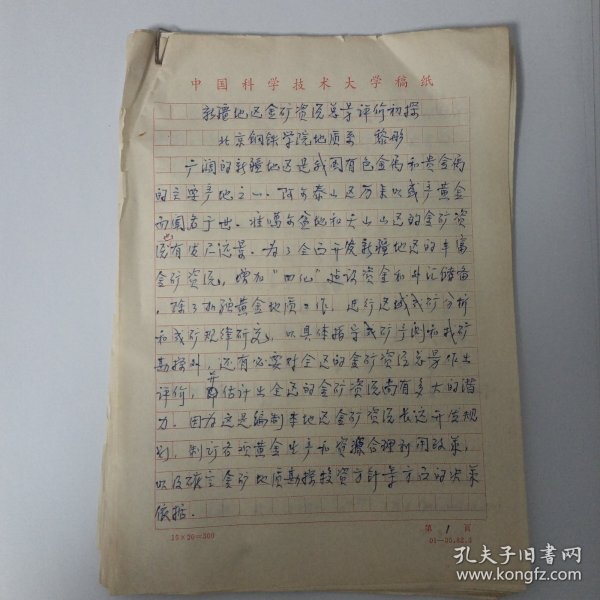 中国科学技术大学稿纸
新疆地区金矿资源总量评价初探
北京钢铁学院地质系 黎彤
广阔的新疆地区是我国有色金属和贵金属
的主要产地之一。阿尔泰山区历来以盛产黄金
而闻名于世。准噶尔盆地和天山山区的金矿资
源也有发展远景。为了全面开发新疆地区的丰富
金矿资源，增加“四化”建设资金和外汇储备
，除了加强黄金地质工作，进行区域成矿分析
和成矿规律研究，以具体指导成矿予测和找矿
勘探外，还有必要对全区的金矿资源总量作出
评价，并估计出全区的金矿资源尚有多大的潜
力。因为这是编制本地区金矿资源长远开发规
划，制订各项黄金生产和资源合理利用政策，
以及确定金矿地质勘探投资方针等方面的决策
依据。
15×20=300
第1页
01—05.82.3
孔夫子旧书网
www.kongfz.com